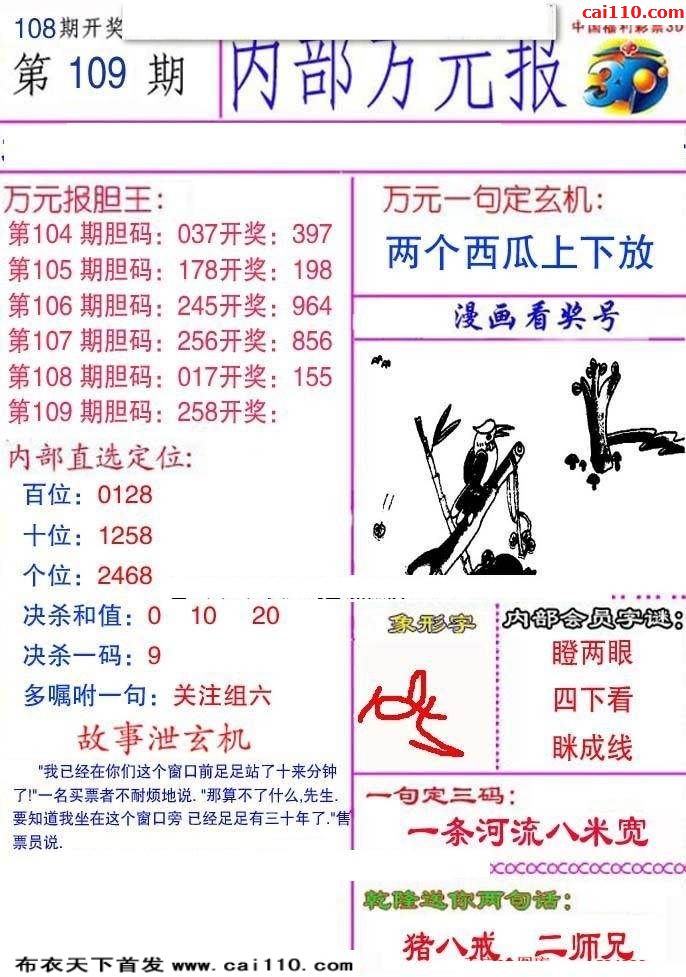 cai110.com
108期开奖
中国福利彩票3D
第 109 期
内部万元报
3D
万元报胆王:
第104 期胆码: 037开奖: 397
第105 期胆码: 178开奖: 198
第106 期胆码: 245开奖: 964
第107 期胆码: 256开奖: 856
第108 期胆码: 017开奖: 155
第109 期胆码: 258开奖:
内部直选定位:
百位: 0128
十位: 1258
个位: 2468
决杀和值: 0 10 20
决杀一码: 9
多嘱咐一句: 关注组六
故事泄玄机
"我已经在你们这个窗口前足足站了十来分钟
了!"一名买票者不耐烦地说. "那算不了什么,先生.
要知道我坐在这个窗口旁 已经足足有三十年了."售
票员说.
万元一句定玄机:
两个西瓜上下放
漫画看奖号
象形字
内部会员字谜:
瞪两眼
四下看
眯成线
一句定三码:
一条河流八米宽
乾隆送你两句话:
猪八戒 二师兄
布衣天下首发 www.cai110.com